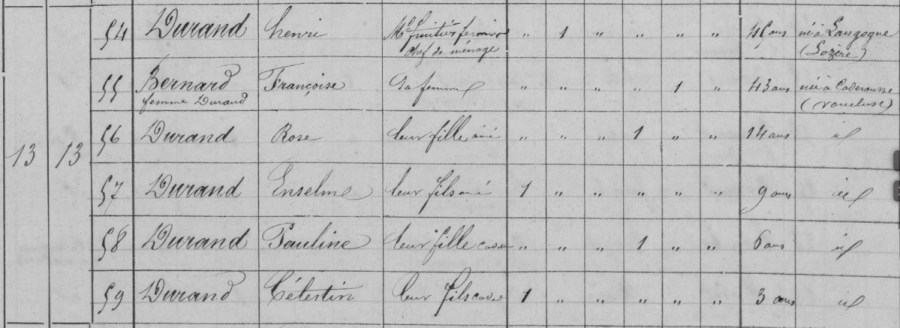 54 Durand henri Md fruitier forain " 1 " " " " 45 ans né à Langogne
chef de ménage (Lozère)
55 Bernard Françoise Sa femme " " " " 1 " 43 ans née à Caderousse
femme Durand (vaucluse)
56 Durand Rose leur fille " " " 1 " " 14 ans id
13 13
57 Durand Enselme leur fils 1 " " " " " 9 ans id
58 Durand Pauline leur fille " " " 1 " " 6 ans id
59 Durand Célestin leur fils 1 " " " " " 3 ans id